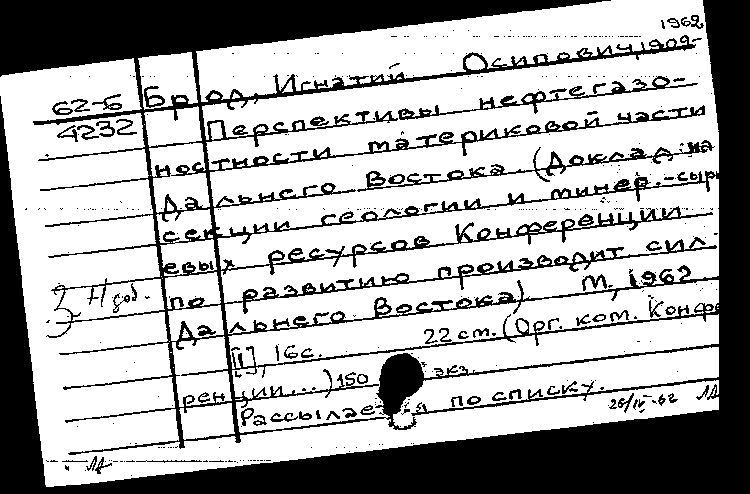 1962
62-Б Брод, Игнатий Осипович, 1902-
4232 Перспективы нефтегазо-
ностности материковой части
Дальнего Востока. (Доклад на
секции геологии и минер.-сырь
евых ресурсов Конференции
по развитию производит. сил
Дальнего Востока). М., 1962.
[1], 16 с. 22 см. (Орг. ком. Конфе
ренции...) 150 экз.
Рассылается по списку.